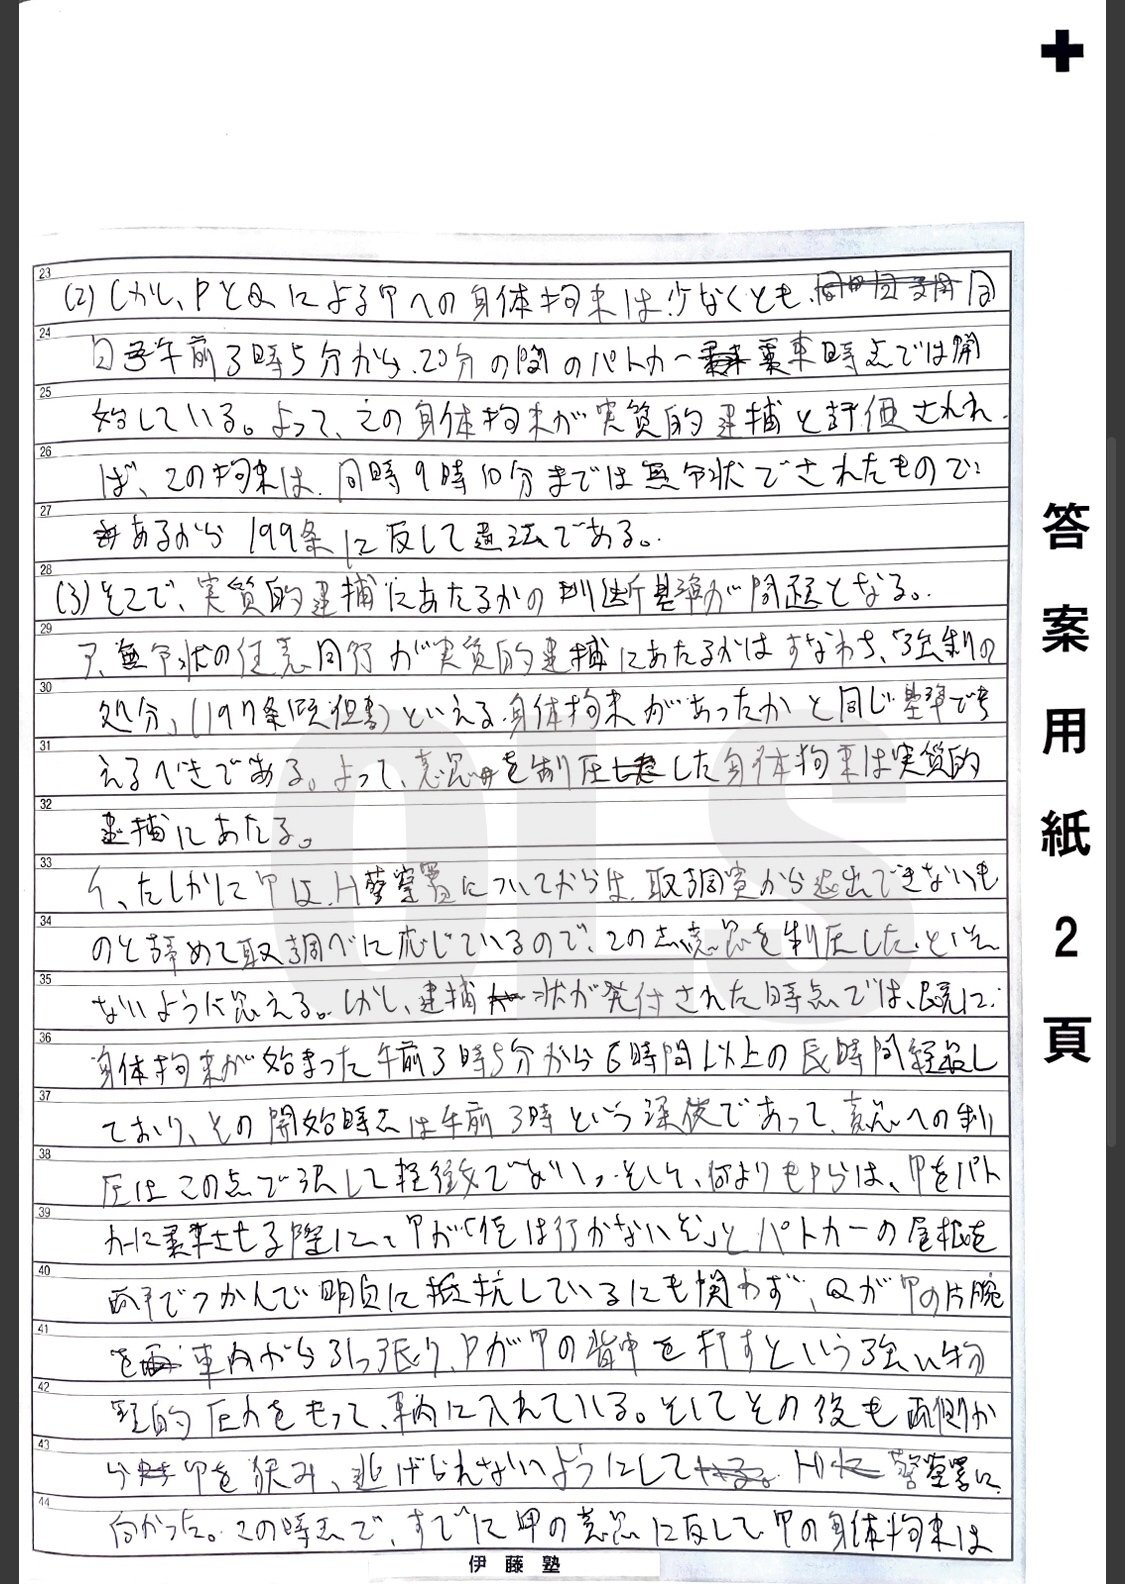 23 (2) しかし、PとQによる甲への身体拘束は、少なくとも、同
24 日午前3時5分から、20分の間のパトカー乗車時点では開
25 始している。よって、この身体拘束が実質的逮捕と評価されれ
26 ば、この拘束は、同時9時10分までは無令状でされたもので
27 あるから199条に反して違法である。
28 (3) そこで、実質的逮捕にあたるかの判断基準が問題となる。
29 ア、無令状の任意同行が実質的逮捕にあたるかはすなわち、「強制の
30 処分」(197条但書)といえる身体拘束があったかと同じ基準で考
31 えるべきである。よって、意思を制圧した身体拘束は実質的
32 逮捕にあたる。
33 イ、たしかに甲は、H警察署についてからは、取調室から退出できないも
34 のと諦めて取調べに応じているので、この意思を制圧したといえ
35 ないように思える。しかし、逮捕状が発付された時点では、既に
36 身体拘束が始まった午前3時5分から6時間以上の長時間経過し
37 ており、その開始時点は午前3時という深夜であって、意思への制
38 圧はこの点で決して軽微でない。そして、何よりもPらは、甲をパト
39 カーに乗車させる際に、甲が「俺は行かないぞ」とパトカーの屋根を
40 両手でつかんで明白に抵抗しているにも関わず、Qが甲の片腕
41 を車内から引っ張り、Pが甲の背中を押すという強い物
42 理的圧力をもって、車内に入れている。そしてその後も両側か
43 ら甲を挟み、逃げられないようにして H警察署に
44 向かった。この時点で、すでに甲の意思に反して甲の身体拘束は
伊藤塾
OLS
答案用紙2頁